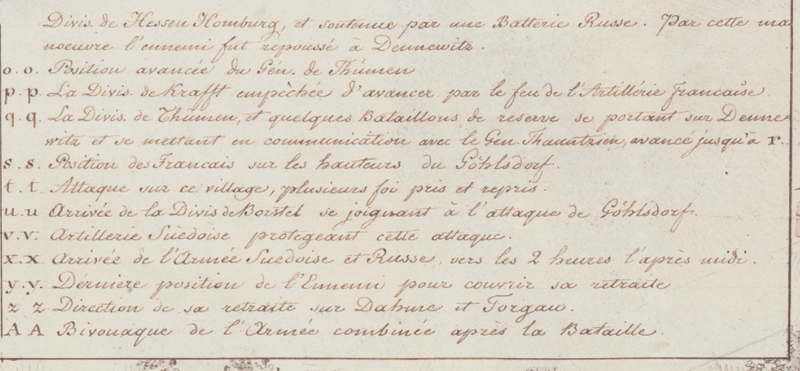 Divis. de Hessen Homburg, et soutenue par une Batterie Russe. Par cette ma
noeuvre l'ennemi fut repoussé à Dennewitz.
o. o. Position avancée du Gén. de Thümen
p. p. La Divis. de Krafft empêchée d'avancer par le feu de l'Artillérie francaise.
q. q. La Divis. de Thümen, et quelques Bataillons de reserve se portant sur Denne
witz et se mettant en communication avec le Gen. Thauntzien, avancé jusqu'a r.
s. s. Position des Francais sur les hauteurs du Göhlsdorf.
t. t. Attaque sur ce village, plusieurs foi pris et repris.
u. u Arrivée de la Divis de Borstel se joignant à l'attaque de Göhlsdorf.
v. v. Artillerie Suèdoise protegeant cette attaque.
x. x Arrivée de l'Armée Suedoise et Russe, vers les 2 heures l'après midi.
y. y. Dérniere position de l'Ennemi pour couvrir sa retraite
z z Direction de sa retraite sur Dahme et Torgau.
A A Bivouaque de l'Armée combinée après la Bataille.